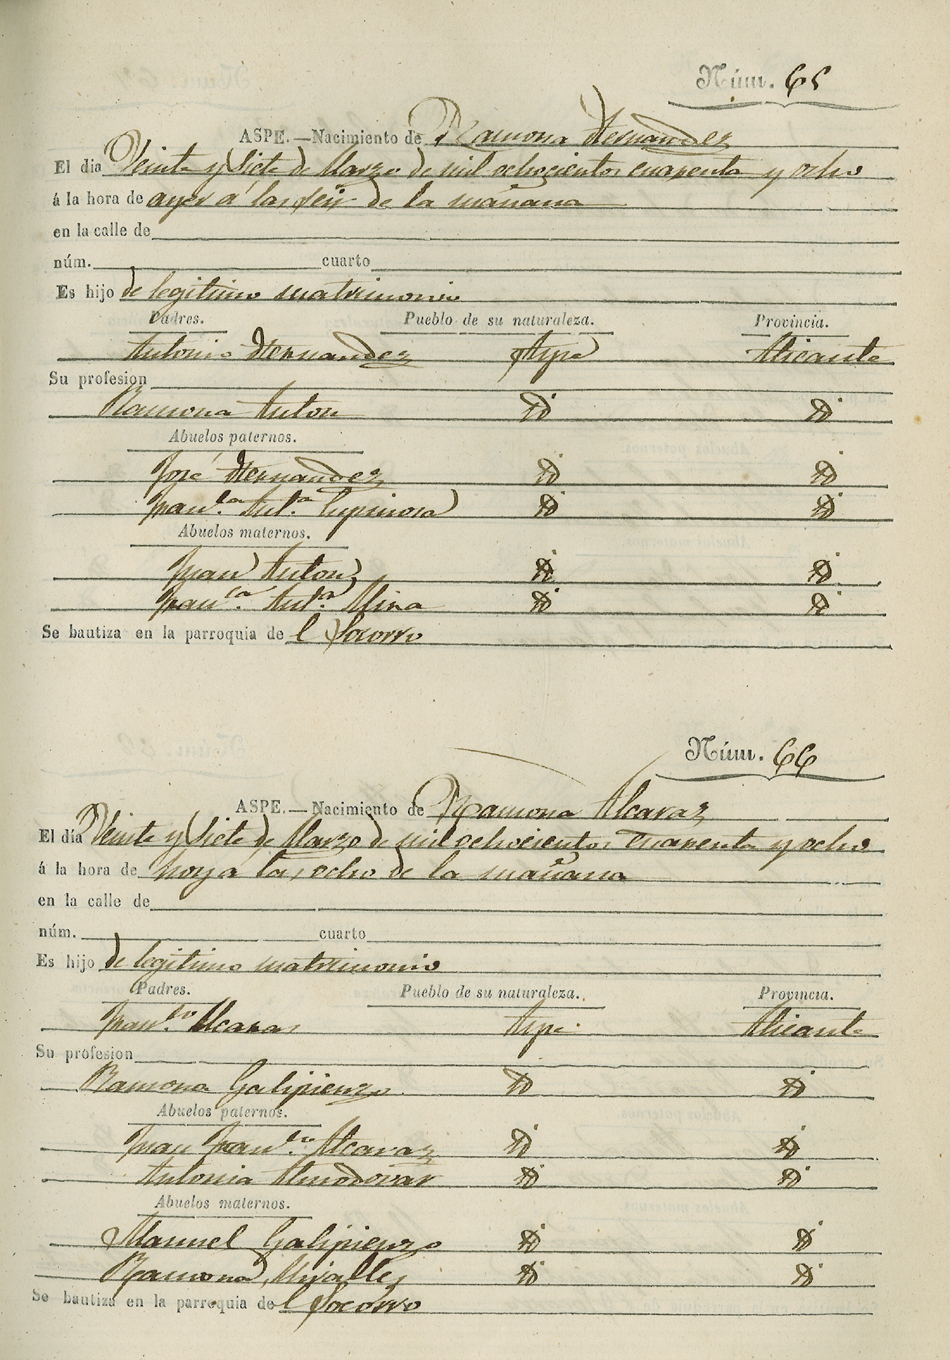 Núm. 65
ASPE.—Nacimiento de Ramona Hernandez
El dia Veinte y Siete de Marzo de mil ochocientos cuarenta y ocho
á la hora de ayer á las seis de la mañana
en la calle de
núm. cuarto
Es hijo de legitimo matrimonio
Padres. Pueblo de su naturaleza. Provincia.
Antonio Hernandez Aspe Alicante
Su profesion
Ramona Anton Yd Yd
Abuelos paternos.
José Hernandez Yd Yd
Fran.ca Ant.a Espinosa Yd Yd
Abuelos maternos.
Juan Anton Yd Yd
Fran.ca Ant.a Mira Yd Yd
Se bautiza en la parroquia del Socorro
Núm. 66
ASPE.—Nacimiento de Ramona Alcaraz
El día Veinte y Siete de Marzo de mil ochocientos cuarenta y ocho
á la hora de hoy á las ocho de la mañana
en la calle de
núm. cuarto
Es hijo de legitimo matrimonio
Padres. Pueblo de su naturaleza. Provincia.
Fran.co Alcaras Aspe Alicante
Su profesion
Ramona Galipienzo Yd Yd
Abuelos paternos.
Juan Fran.co Alcaraz Yd Yd
Antonia Almodovar Yd Yd
Abuelos maternos.
Manuel Galipienzo Yd Yd
Ramona Miralles Yd Yd
Se bautiza en la parroquia del Socorro